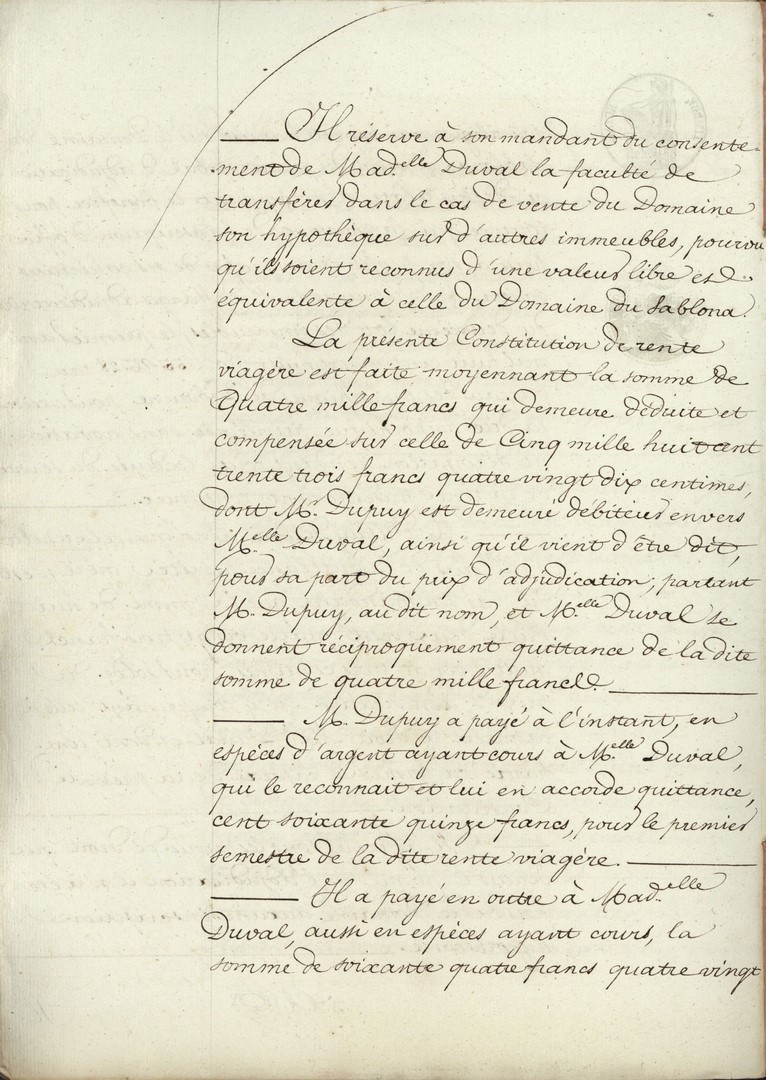 Il réserve à son mandant du consente-
ment de Mad.elle Duval la faculté de
transférer dans le cas de vente du Domaine
son hypothèque sur d'autres immeubles, pourvu
qu'ils soient reconnus d'une valeur libre et
équivalente à celle du Domaine du Sablona.
La présente Constitution de rente
viagère est faite moyennant la somme de
Quatre mille francs qui demeure déduite et
compensée sur celle de Cinq mille huit cent
trente trois francs quatre vingt dix centimes,
dont M.r Dupuy est demeuré débiteur envers
M.elle Duval, ainsi qu'il vient d'être dit,
pour sa part du prix d'adjudication; partant
M. Dupuy, au dit nom, et M.elle Duval se
donnent réciproquement quittance de la dite
somme de quatre mille francs.
M. Dupuy a payé à l'instant, en
espèces d'argent ayant cours à M.elle Duval,
qui le reconnait et lui en accorde quittance,
cent soixante quinze francs, pour le premier
semestre de la dite rente viagère.
Il a payé en outre à Mad.elle
Duval, aussi en espèces ayant cours, la
somme de soixante quatre francs quatre vingt